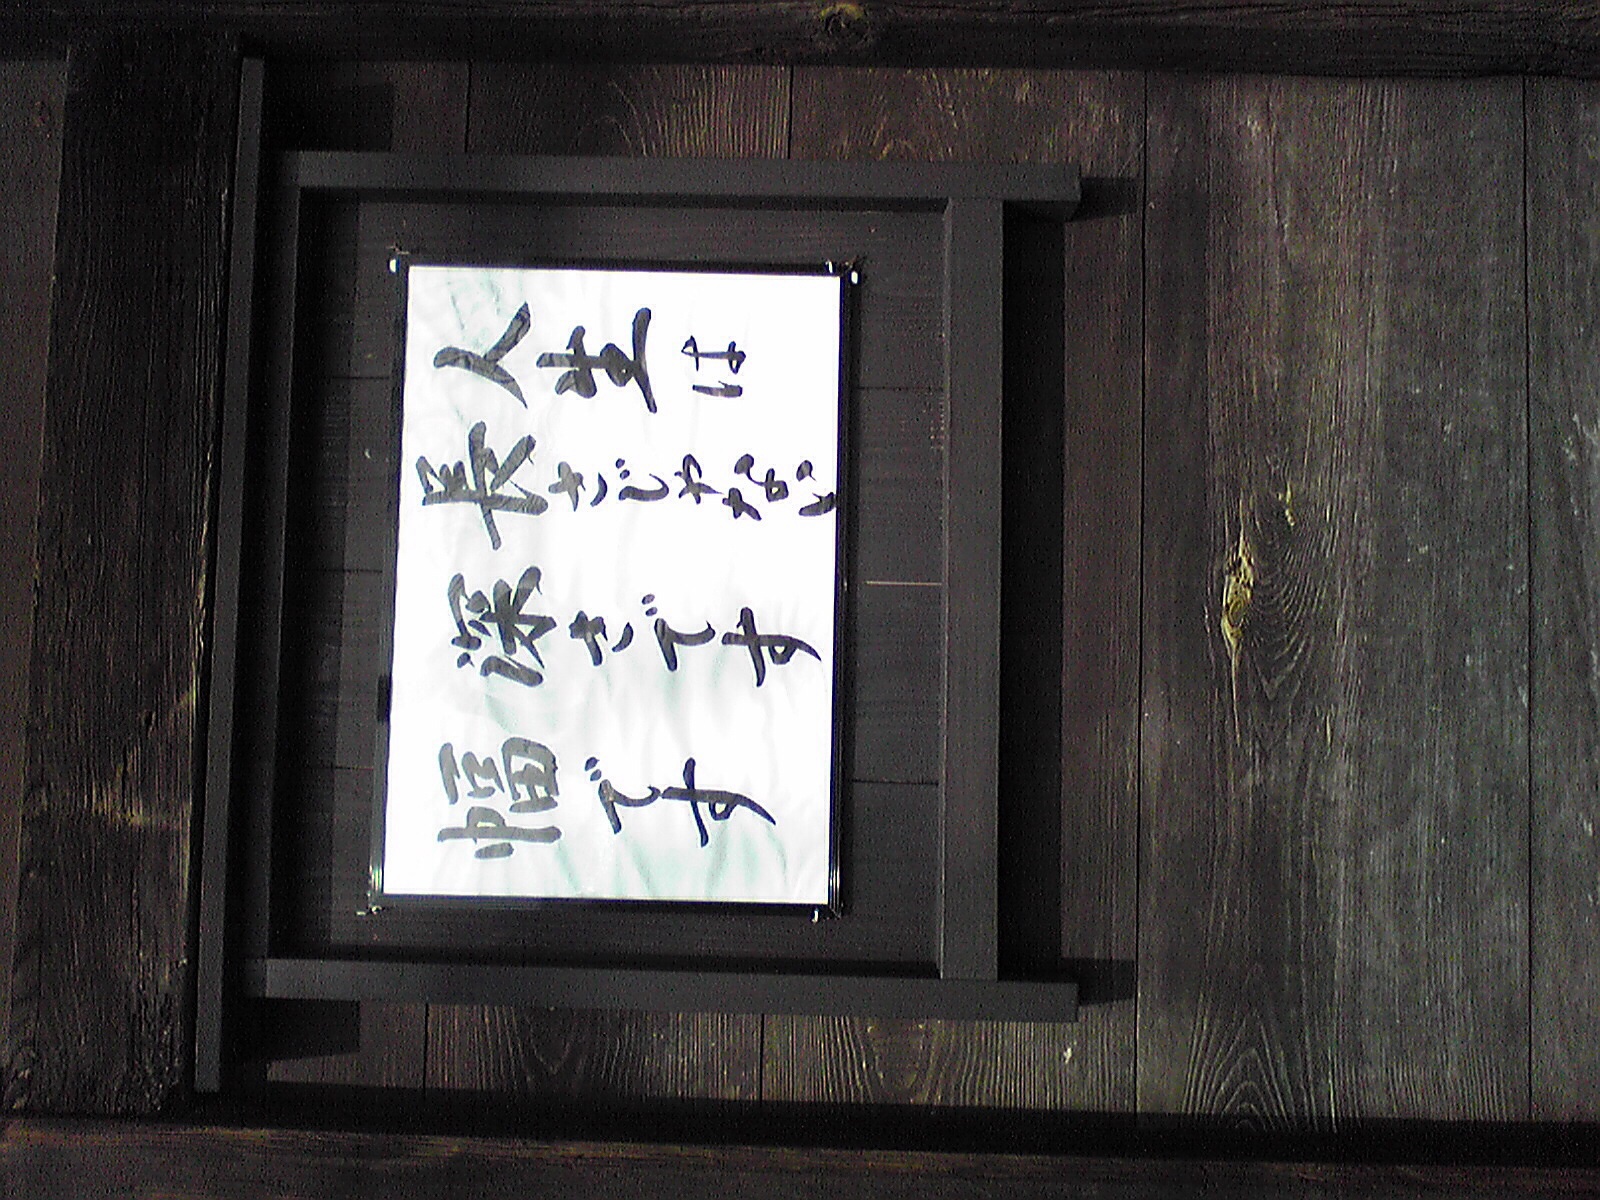 人生は
長さじゃない
深さです
幅です